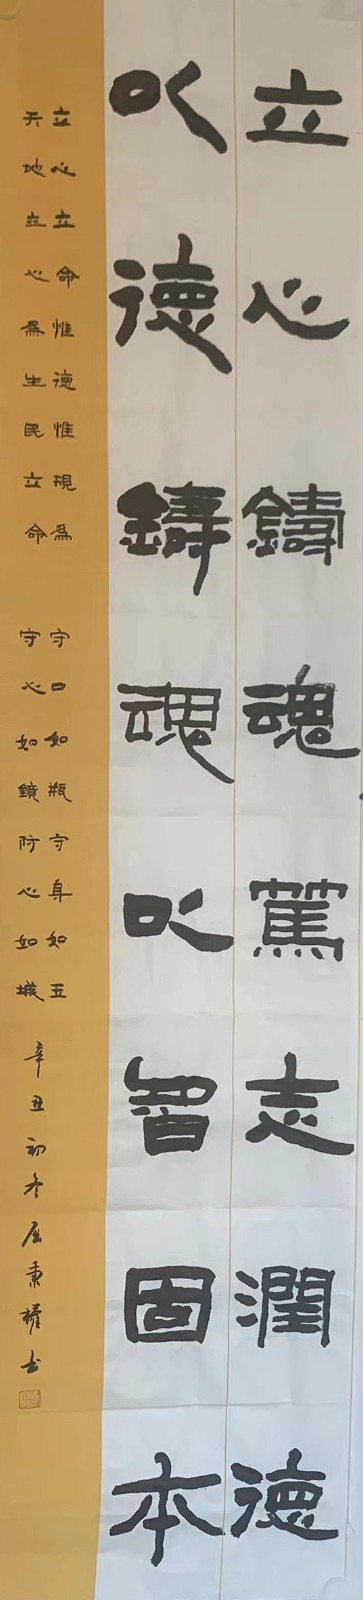 立心鑄魂篤志潤德
以德鑄魂以智固本
立心立命惟德惟規為
天地立心為生民立命
守口如瓶守身如玉
守心如鏡防心如城
辛丑初冬屈秉權书